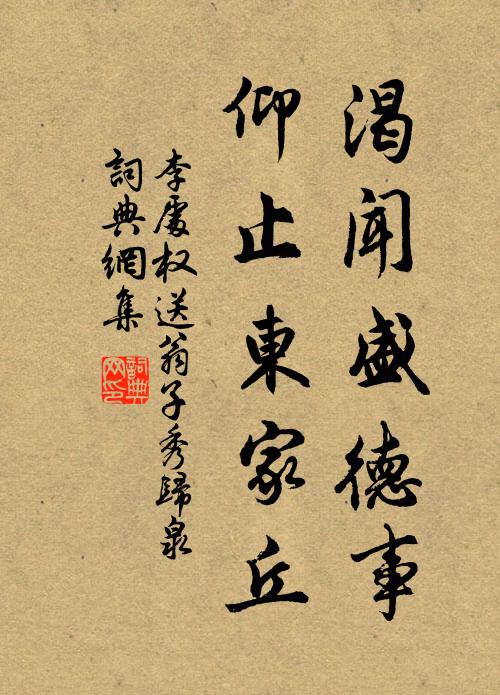 渴聞盛德事
仰止東家丘
李處权送翁子秀歸泉
詞典網集
詞典网印